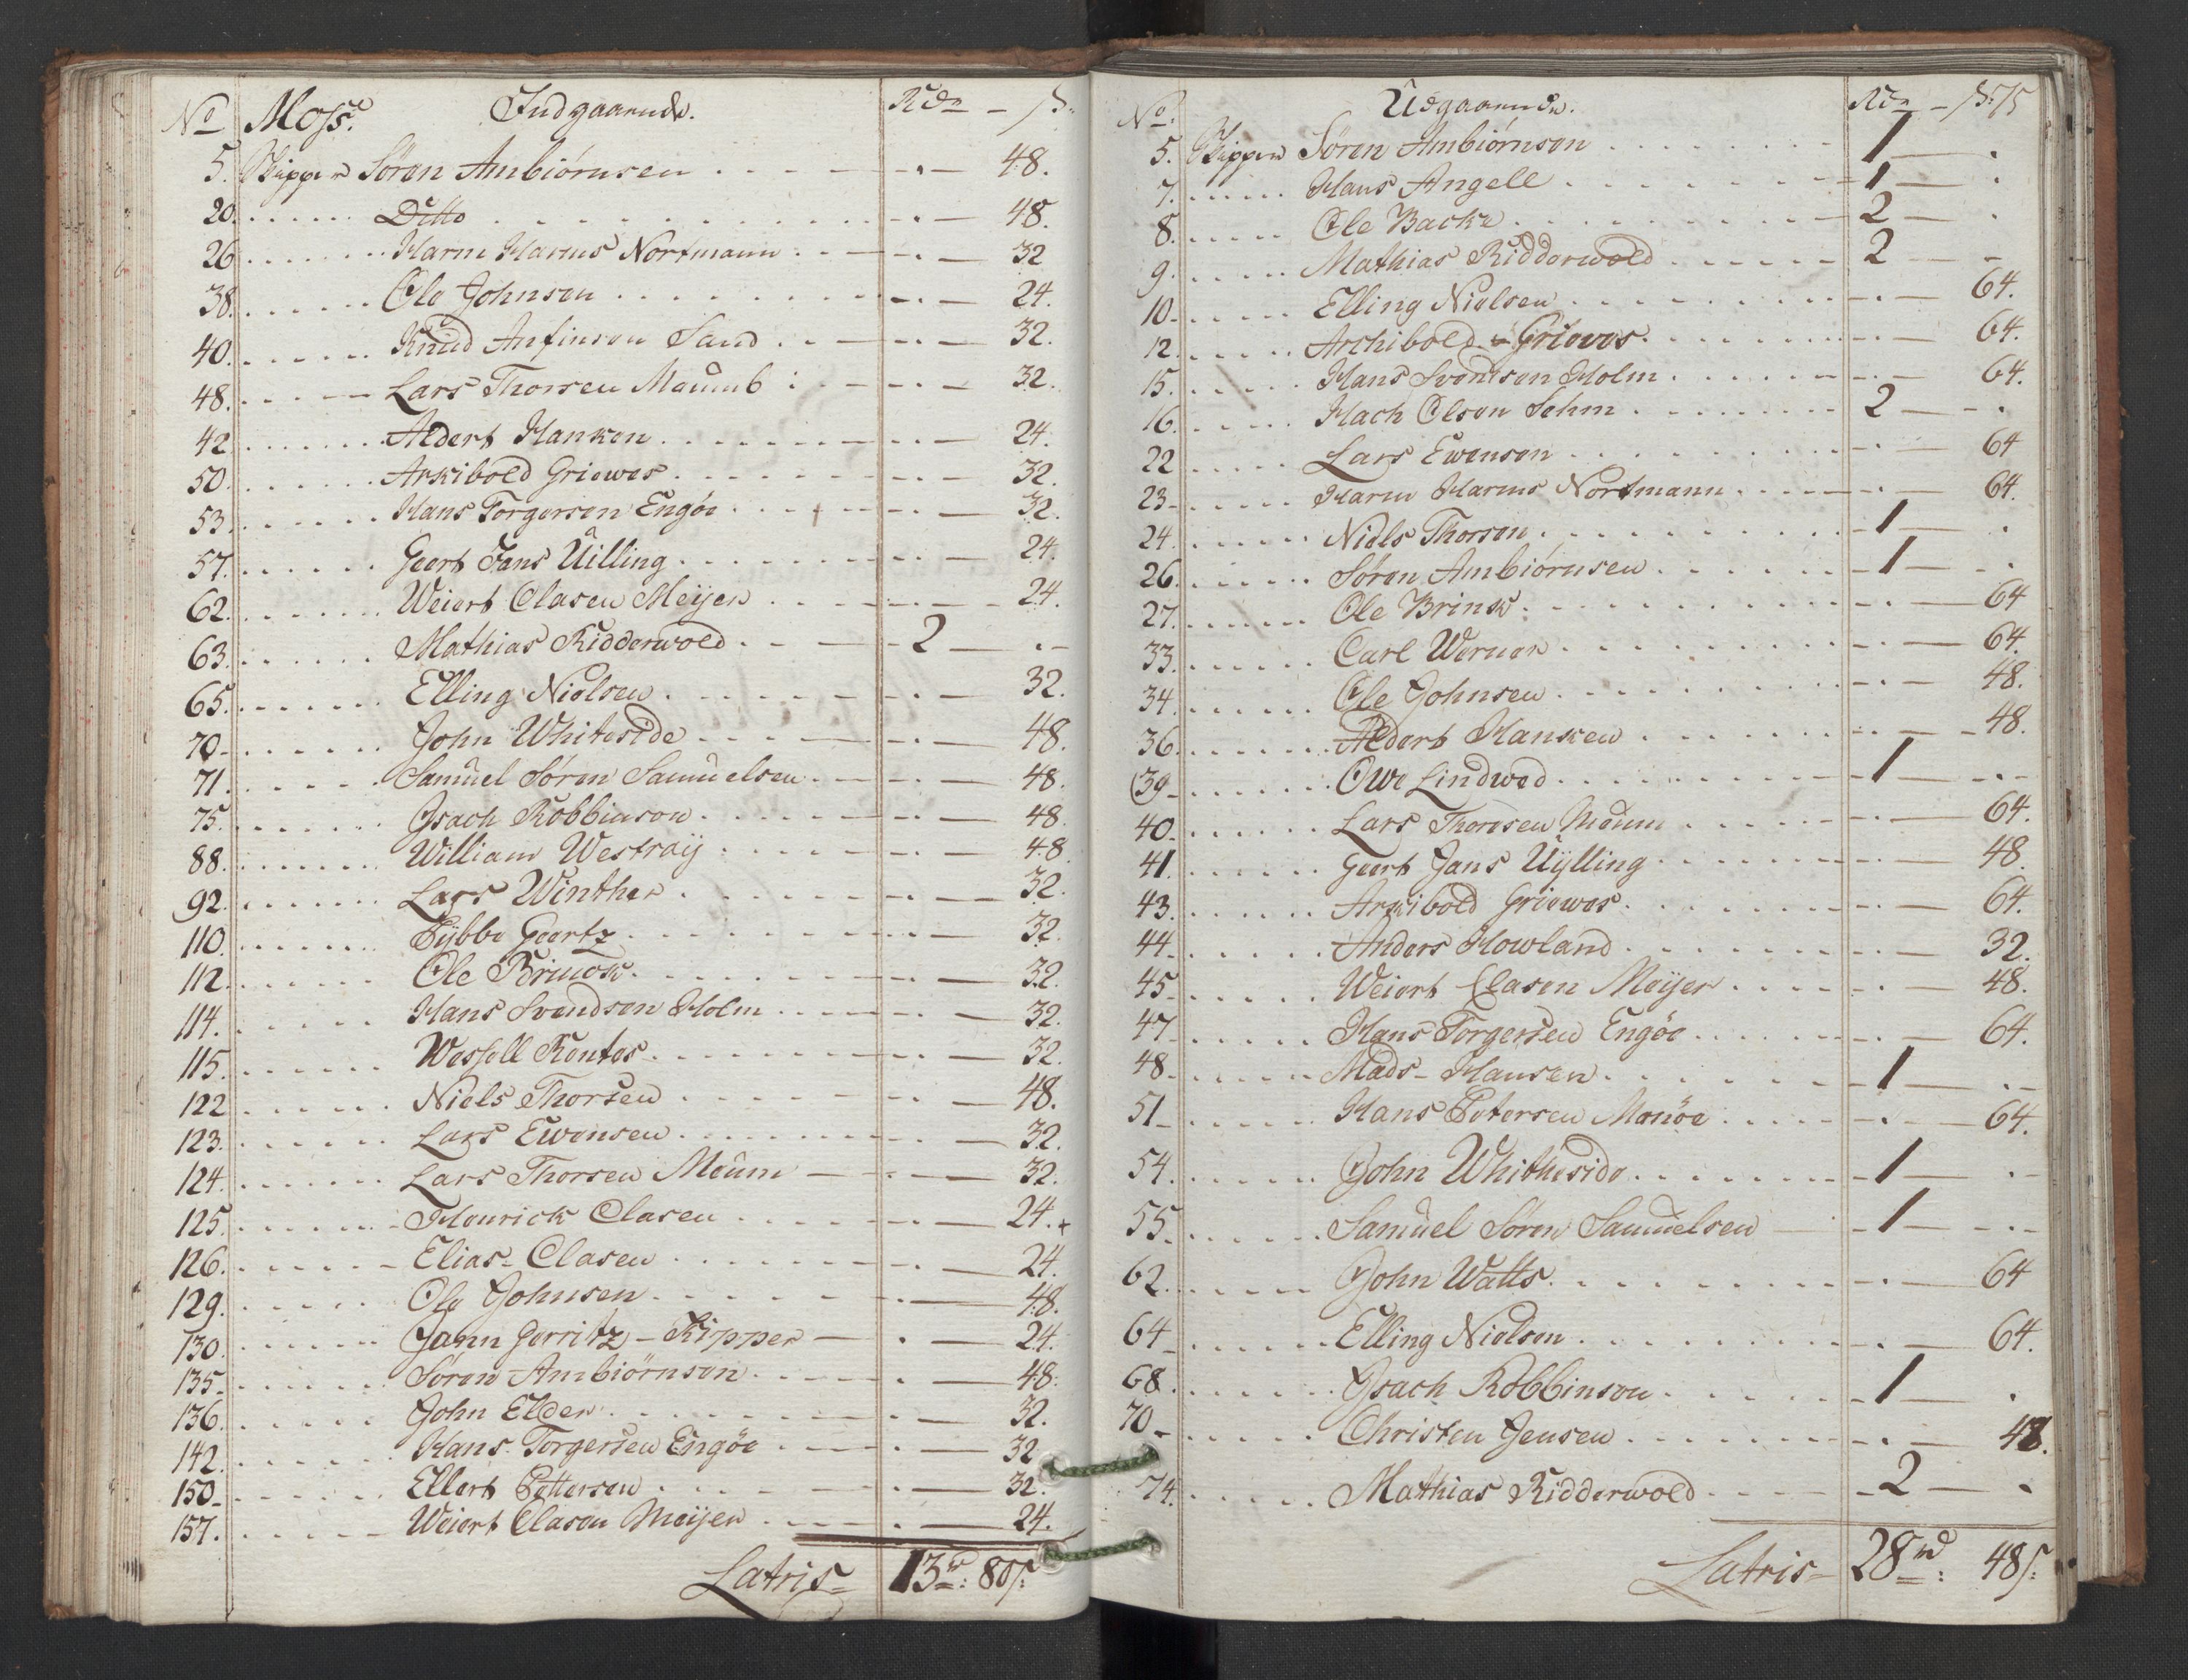 No Moss. Indgaaende. Rdr - s:
5. Skipper Sören Ambiörnsen . - 48.
20. Ditto . - 48.
26 Harm Harms Nortmann . - 32
38. Ole Johnsen . - 24.
40. Knud Anfinsen Sand . - 32.
48. Lars Thorsen Maumb : . - 32.
42 Aldert Hanken . - 24.
50. Arkibold Griewes . - 32.
53. Hans Torgersen Engöe . - 32.
57. Geert Jans Uilling . - 24.
62. Weiert Clasen Meijer . - 24.
63. Mathias Ridderwold . 2 - . -
65. Elling Nielsen . - 32.
70. John Whiteside . - 48.
71. Samuel Sören Samuelsen . - 48.
75. Isach Robbinson . - 48.
88. William Westraij . - 48
92. Lars Winther . - 32.
110. Tijbbe Geertz . - 32.
112. Ole Brinck . - 32.
114. Hans Svendsen Holm . - 32.
115. Wessell Rentes . - 32.
122 Niels Thorsen . - 48.
123. Lars Ewensen . - 32.
124. Lars Thorsen Meum . - 32.
125. Henrick Clasen . - 24. +
126. Elias Clasen . - 24.
129. Ole Johnsen . - 48.
130. Jann Gerritz - Kipper . - 24.
135. Sören Ambiörnsen . - 48.
136. John Elder . - 32.
142. Hans Torgersen Engöe . - 32
150. Ellert Pettersen . - 32.
157. Weiert Clasen Meijer . - 24.
Latris 13rd: 80s:
No. Udgaaende. Rdr - s: 75
5. Skipper Sören Ambiörnsen 1 - .
7. Hans Angell 1 - .
8. Ole Backe 2 - .
9. Mathias Ridderwold 2 - -
10. Elling Nielsen . - 64.
12. Archibold Grieves . - 64.
15. Hans Svendsen Holm . - 64.
16. Hach Olsen Sehm 2 - - .
22 Lars Ewensen . - 64
23. Harm Harms Nortmann . - 64.
24. Niels Thorsen 1 - .
26. Sören Ambiörnsen 1 - - .
27. Ole Brinck . - 64
33. Carl Werner . - 64.
34. Ole Johnsen . - 48.
36. Aldert Hansken . - 48.
39. Owe Lindwed 1 - . -
40. Lars Thoresen Moum . - 64.
41. Geert Jans Uijlling . - 48.
43. Arkibold Griewes . - 64.
44. Anders Howland . - 32.
45. Weiert Clasen Meijer . - 48.
47. Hans Torgersen Engöe . - 64.
48. Mads Hansen 1 - . -
51. Hans Petersen Monöe . - 64.
54. John Whitheside 1 - . -
55. Samuel Sören Samuelsen 1 - . -
62. John Watts . - 64
64. Elling Nielsen . - 64.
68. Isach Robbinson 1 - .
70. Christen Jensen . - 48.
74. Mathias Ridderwold 2 - .
Latris 28rd: 48s: